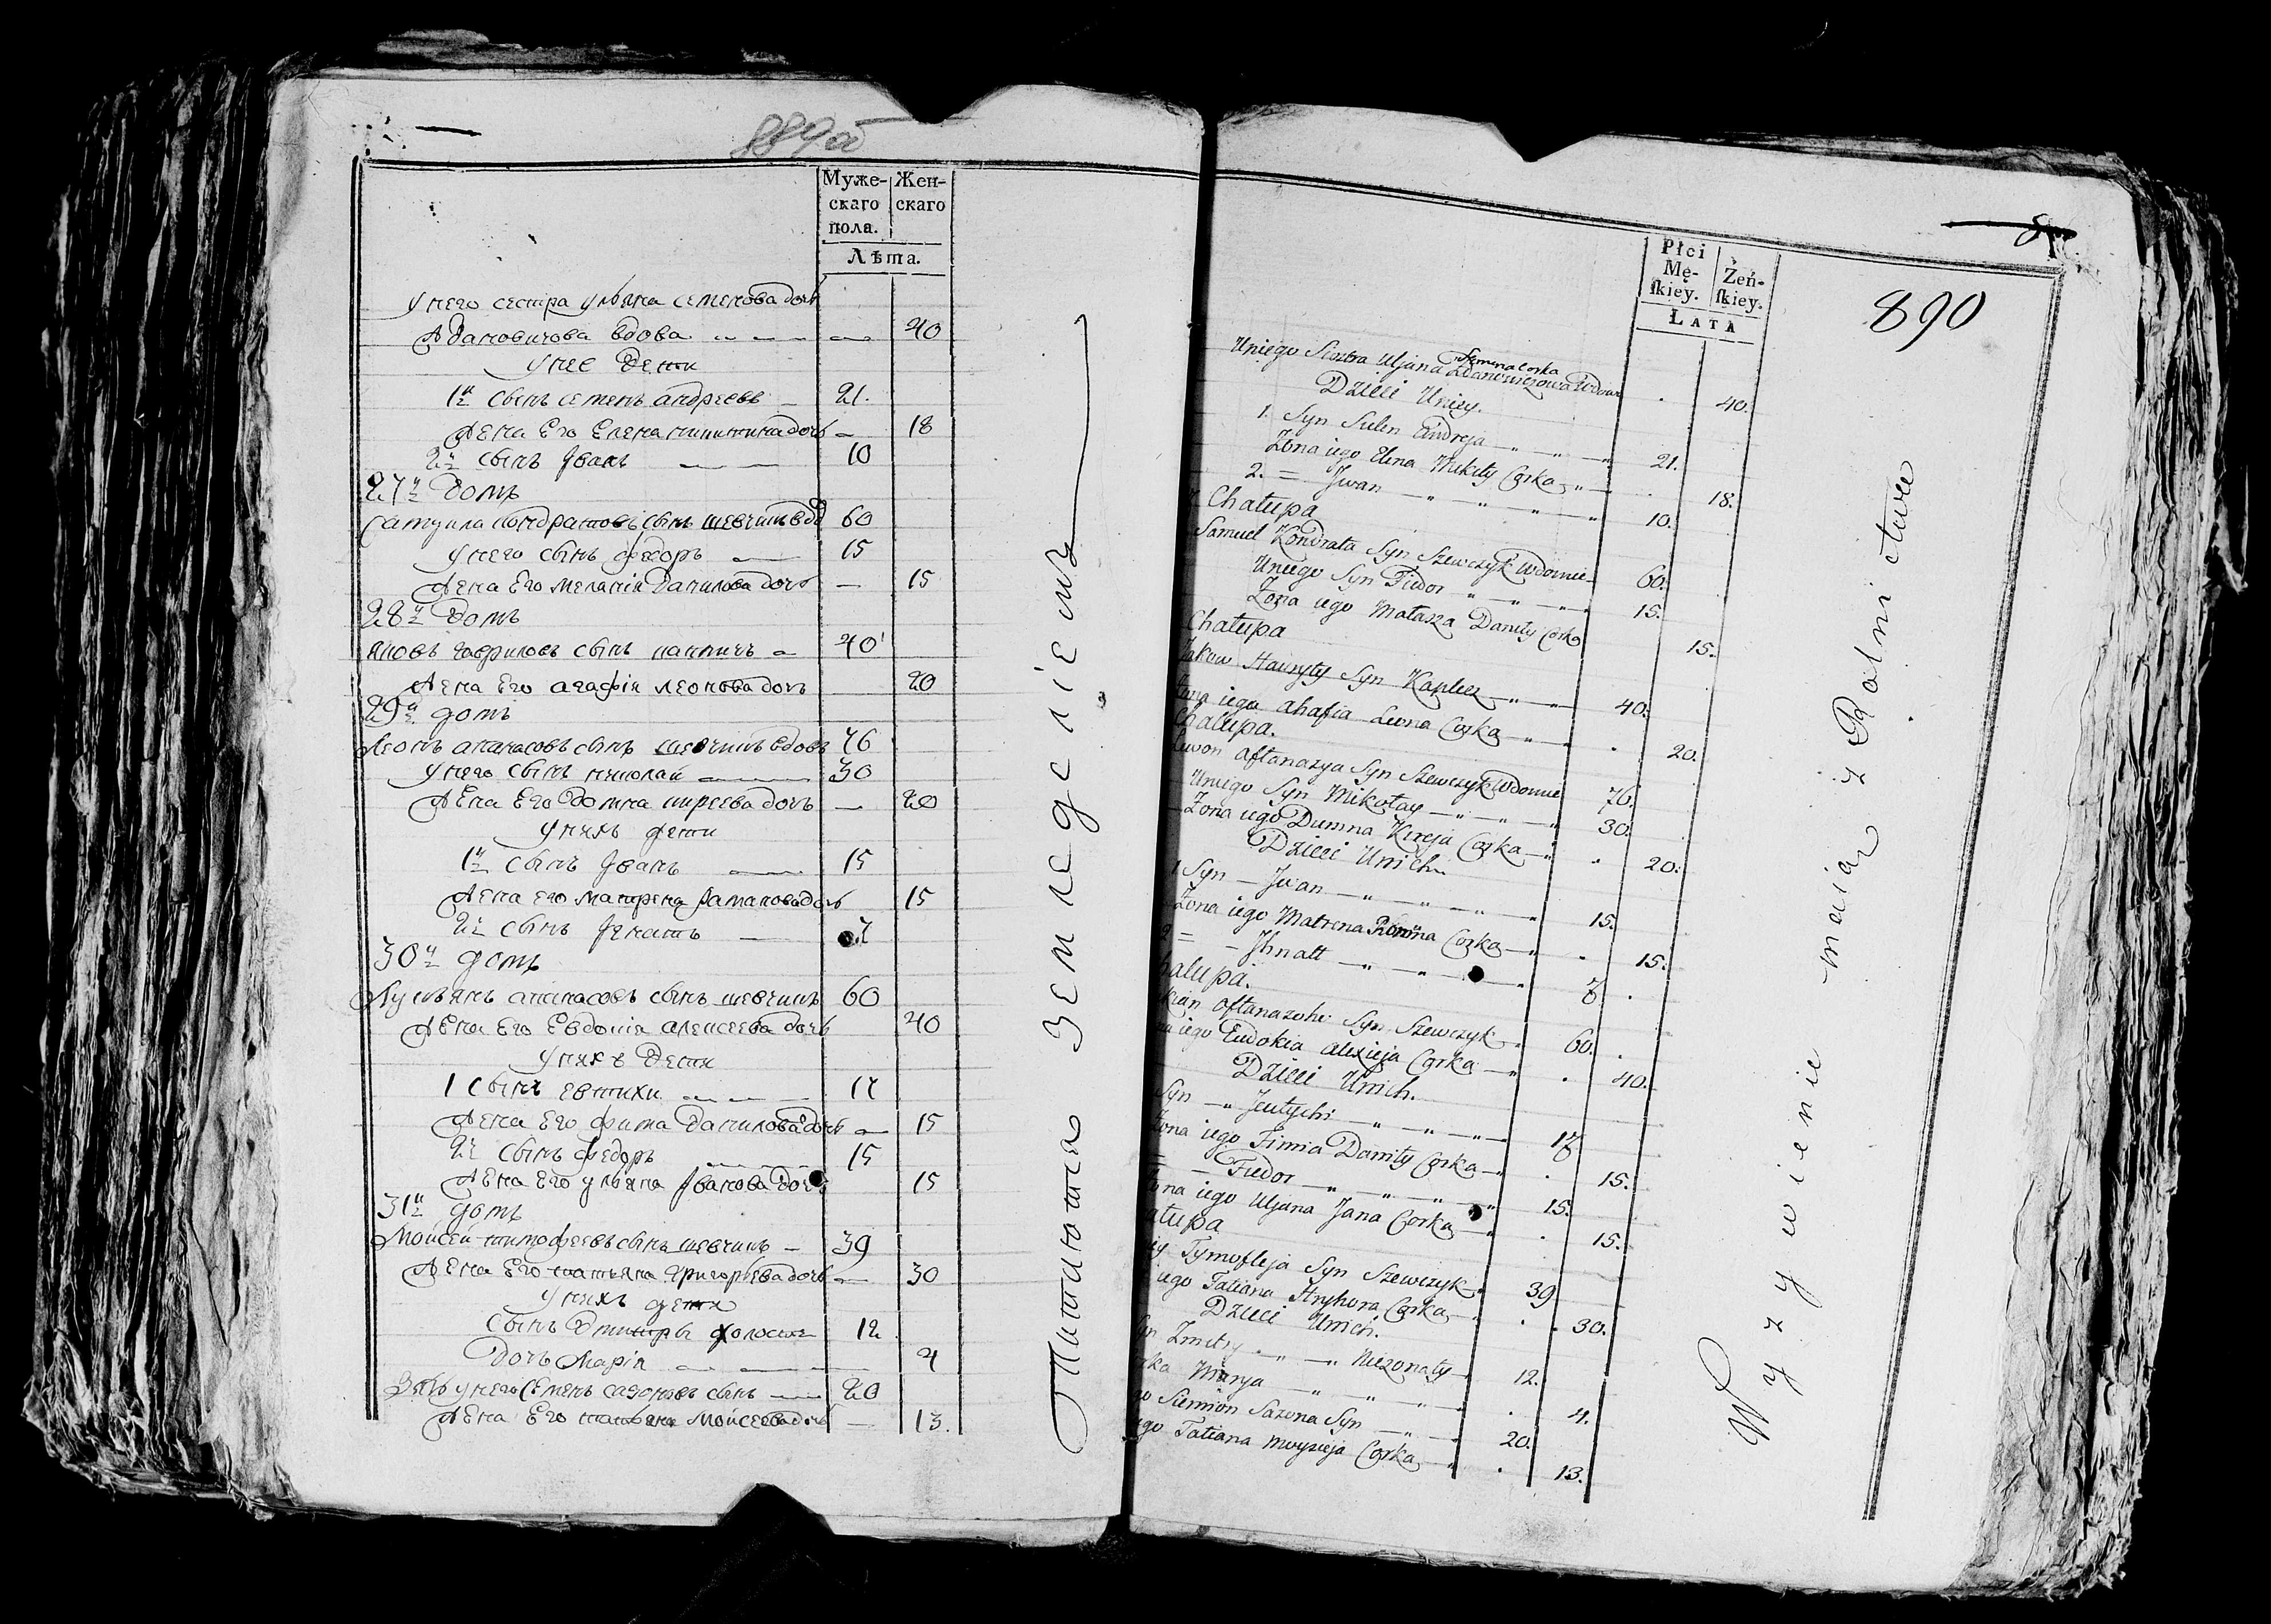 889об
Муже- Жен-
скаго скаго
пола.
Лѣта.
у него сестра ульяна семенова дочь
Адамовичова вдова 40
у нее дети
1й сынъ семенъ андреевъ 21.
Жена Его Елена никитина дочь 18
2й сынъ Иванъ 10
27й домъ
Самуила кондратовъ сынъ шевчикъ 60
у него сынъ федоръ 15
Жена Его мелания данилова дочь 15
28й домъ
яковъ гавриловъ сынъ 40
Жена Его агафія леонова дочь 20
29й домъ
Леонъ апанасовъ сынъ шевчикъ вдовъ 76
у него сынъ николай 30
Жена Его домна киреева дочь 20
у нихъ дети
1й сынъ Иванъ 15
Жена его матрена романова дочь 15
2й сынъ Игнатъ 7
30й домъ
Лукьянъ апанасовъ сынъ шевчикъ 60
Жена Его Евдокія алексеева дочь 40
у нихъ дети
1 сынъ евтихи 17
Жена Его фима данилова дочь 15
2й сынъ федоръ 15
Жена Его ульяна Иванова дочь 15
31й домъ
Мойсей тимофеевъ сынъ шевчикъ 39
Жена Его татьяна григорьева дочь 30
у нихъ дети
сынъ дмитры холостъ 12
дочь Марія 4
Зять у него Семенъ сазоновъ сынъ 20
Жена Его татьяна Мойсеева дочь 13.
Питаются земледеліемъ
890
Płci
Mę- Żeń-
skiey. skiey.
LATA
Semena Corka
Uniego Siostra Uljana Zdanowiczowa Wdowa 40.
Dzieci Uniey.
1. Syn Andreja 21.
Żona iego Elena Mikity Corka 18.
2. = Jwan 10.
Chałupa
Samuel Kondrata Syn Szewczyk Wdowiec 60.
Uniego Syn Fiedor 15.
Żona iego Małasza Daniły Corka 15.
Chałupa
Jakow Hauryły Syn 40.
iego Ahafia Leona Corka 20.
Chałupa.
Lewon Aftanazya Syn Szewczyk Wdowiec 76.
Uniego Syn Mikołay 30.
Żona iego Dumna Kireja Corka 20.
Dzieci Unich.
1 Syn Jwan 15.
Żona iego Matrena Corka 15.
2 = Jhnatt 7.
hałupa.
kian Syn Szewczyk 60.
na iego Eudokia Alexieja Corka 40.
Dzieci Unich.
Syn Jeutychi 17
Żona iego Fimia Daniły Corka 15.
= Fiedor 15.
ona iego Uljana Jana Corka 15.
ałupa
Tymofieja Syn Szewczyk 39
iego Tatiana Hryhora Corka 30.
Dzieci Unich.
yn Zmitry Nieżonaty 12.
rka Marya 4.
go Siemion Sazona Syn 20.
ego Tatiana Moyzieja Corka 13.
Wyzywienie maią z Rolnictwa